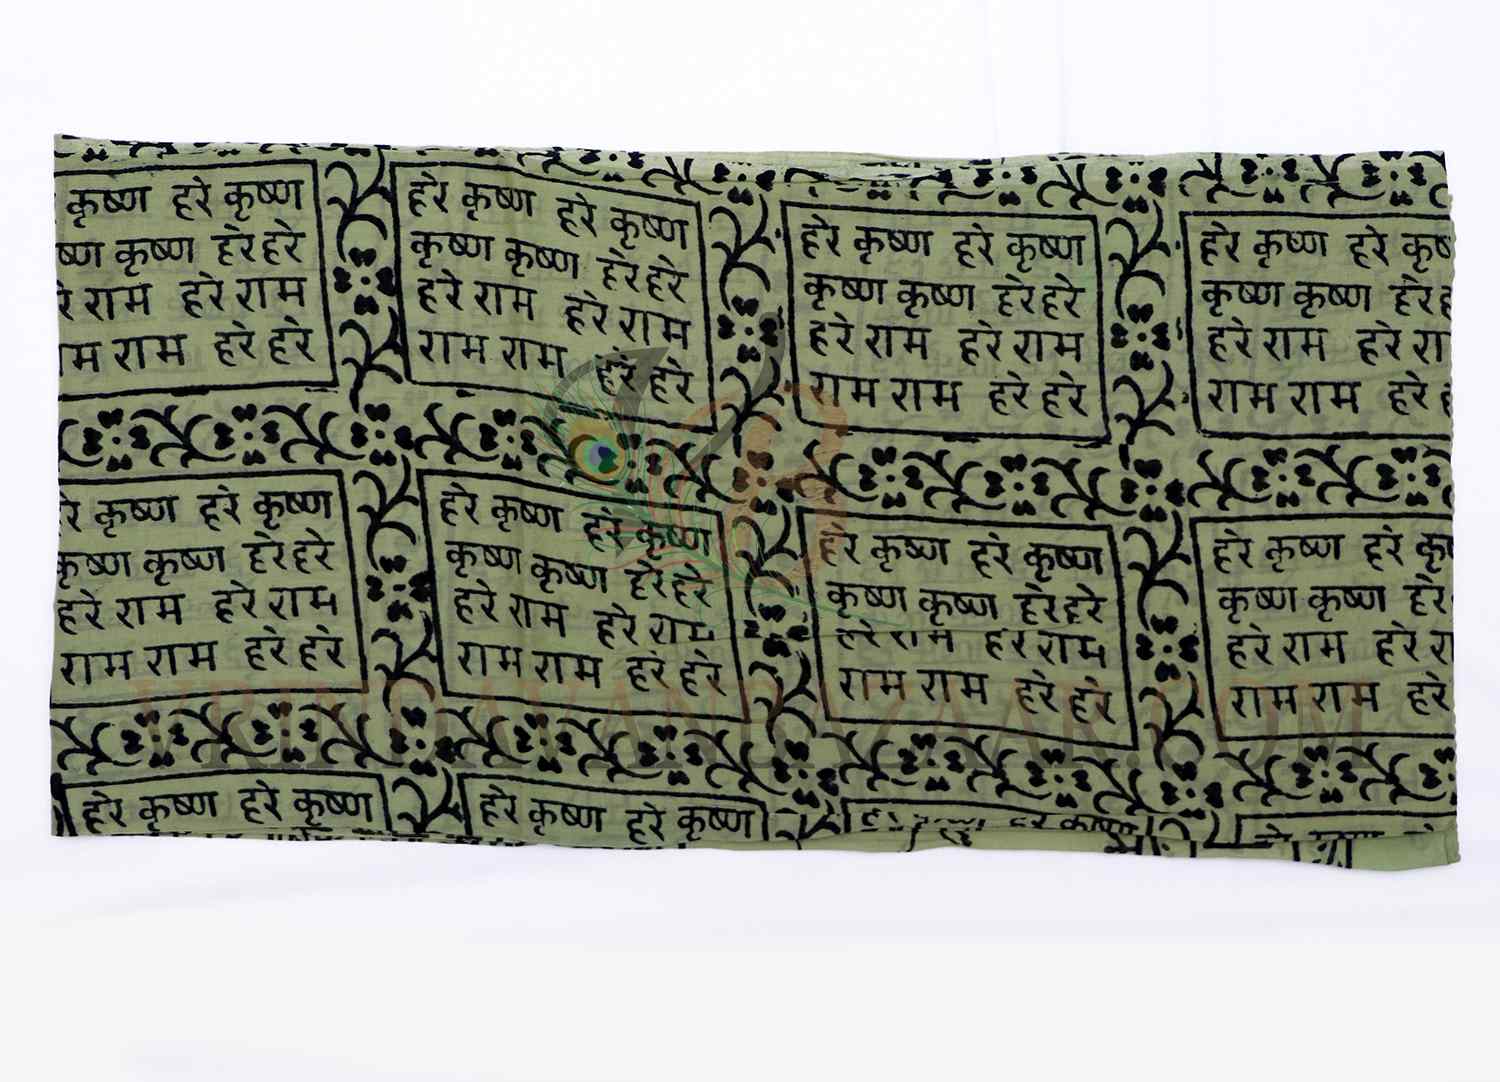 कृष्ण हरे कृष्ण
कृष्ण हरे हरे
राम हरे राम
राम हरे हरे
हरे कृष्ण हरे कृष्ण
कृष्ण कृष्ण हरे हरे
हरे राम हरे राम
राम राम हरे हरे
हरे कृष्ण हरे कृष्ण
कृष्ण कृष्ण हरे हरे
हरे राम हरे राम
राम राम हरे हरे
हरे कृष्ण हरे
कृष्ण कृष्ण हरे
हरे राम हरे
राम राम हरे
कृष्ण हरे कृष्ण
कृष्ण कृष्ण हरे हरे
हरे राम हरे राम
राम राम हरे हरे
हरे कृष्ण हरे कृष्ण
कृष्ण कृष्ण हरे हरे
हरे राम हरे राम
राम राम हरे हरे
हरे कृष्ण हरे कृष्ण
कृष्ण कृष्ण हरे हरे
हरे राम हरे राम
राम राम हरे हरे
हरे कृष्ण हरे
कृष्ण कृष्ण हरे
हरे राम हरे
राम राम हरे
VRINDAVANBAZAAR.COM
हरे कृष्ण हरे कृष्ण
हरे कृष्ण हरे कृष्ण